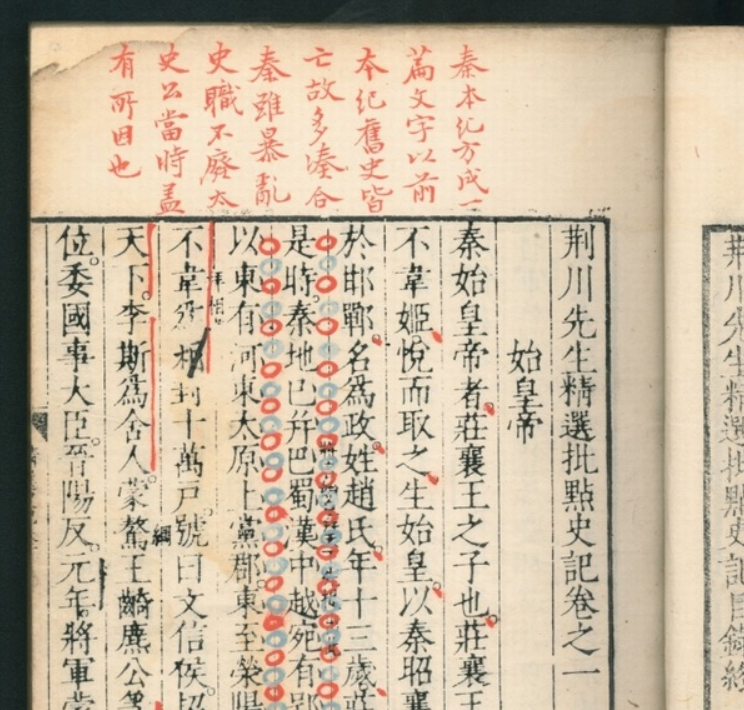 秦本紀方成一
篇文字以前
本紀舊史皆
亡故多湊合
秦雖暴亂
史職不廢太
史公當時盖
有所因也
荆川先生精選批點史記卷之一
始皇帝
秦始皇帝者莊襄王之子也莊襄王
不韋姬悅而取之生始皇以秦昭襄
於邯鄲名爲政姓趙氏年十三歲莊
是時秦地已并巴蜀漢中越宛有郢
以東有河東太原上黨郡東至滎陽
不韋爲相封十萬户號曰文信侯招
天下李斯爲舍人蒙驁王齮麃公等
綱
位委國事大臣晉陽反元年將軍蒙
荆川先生精選批點史記目錄終